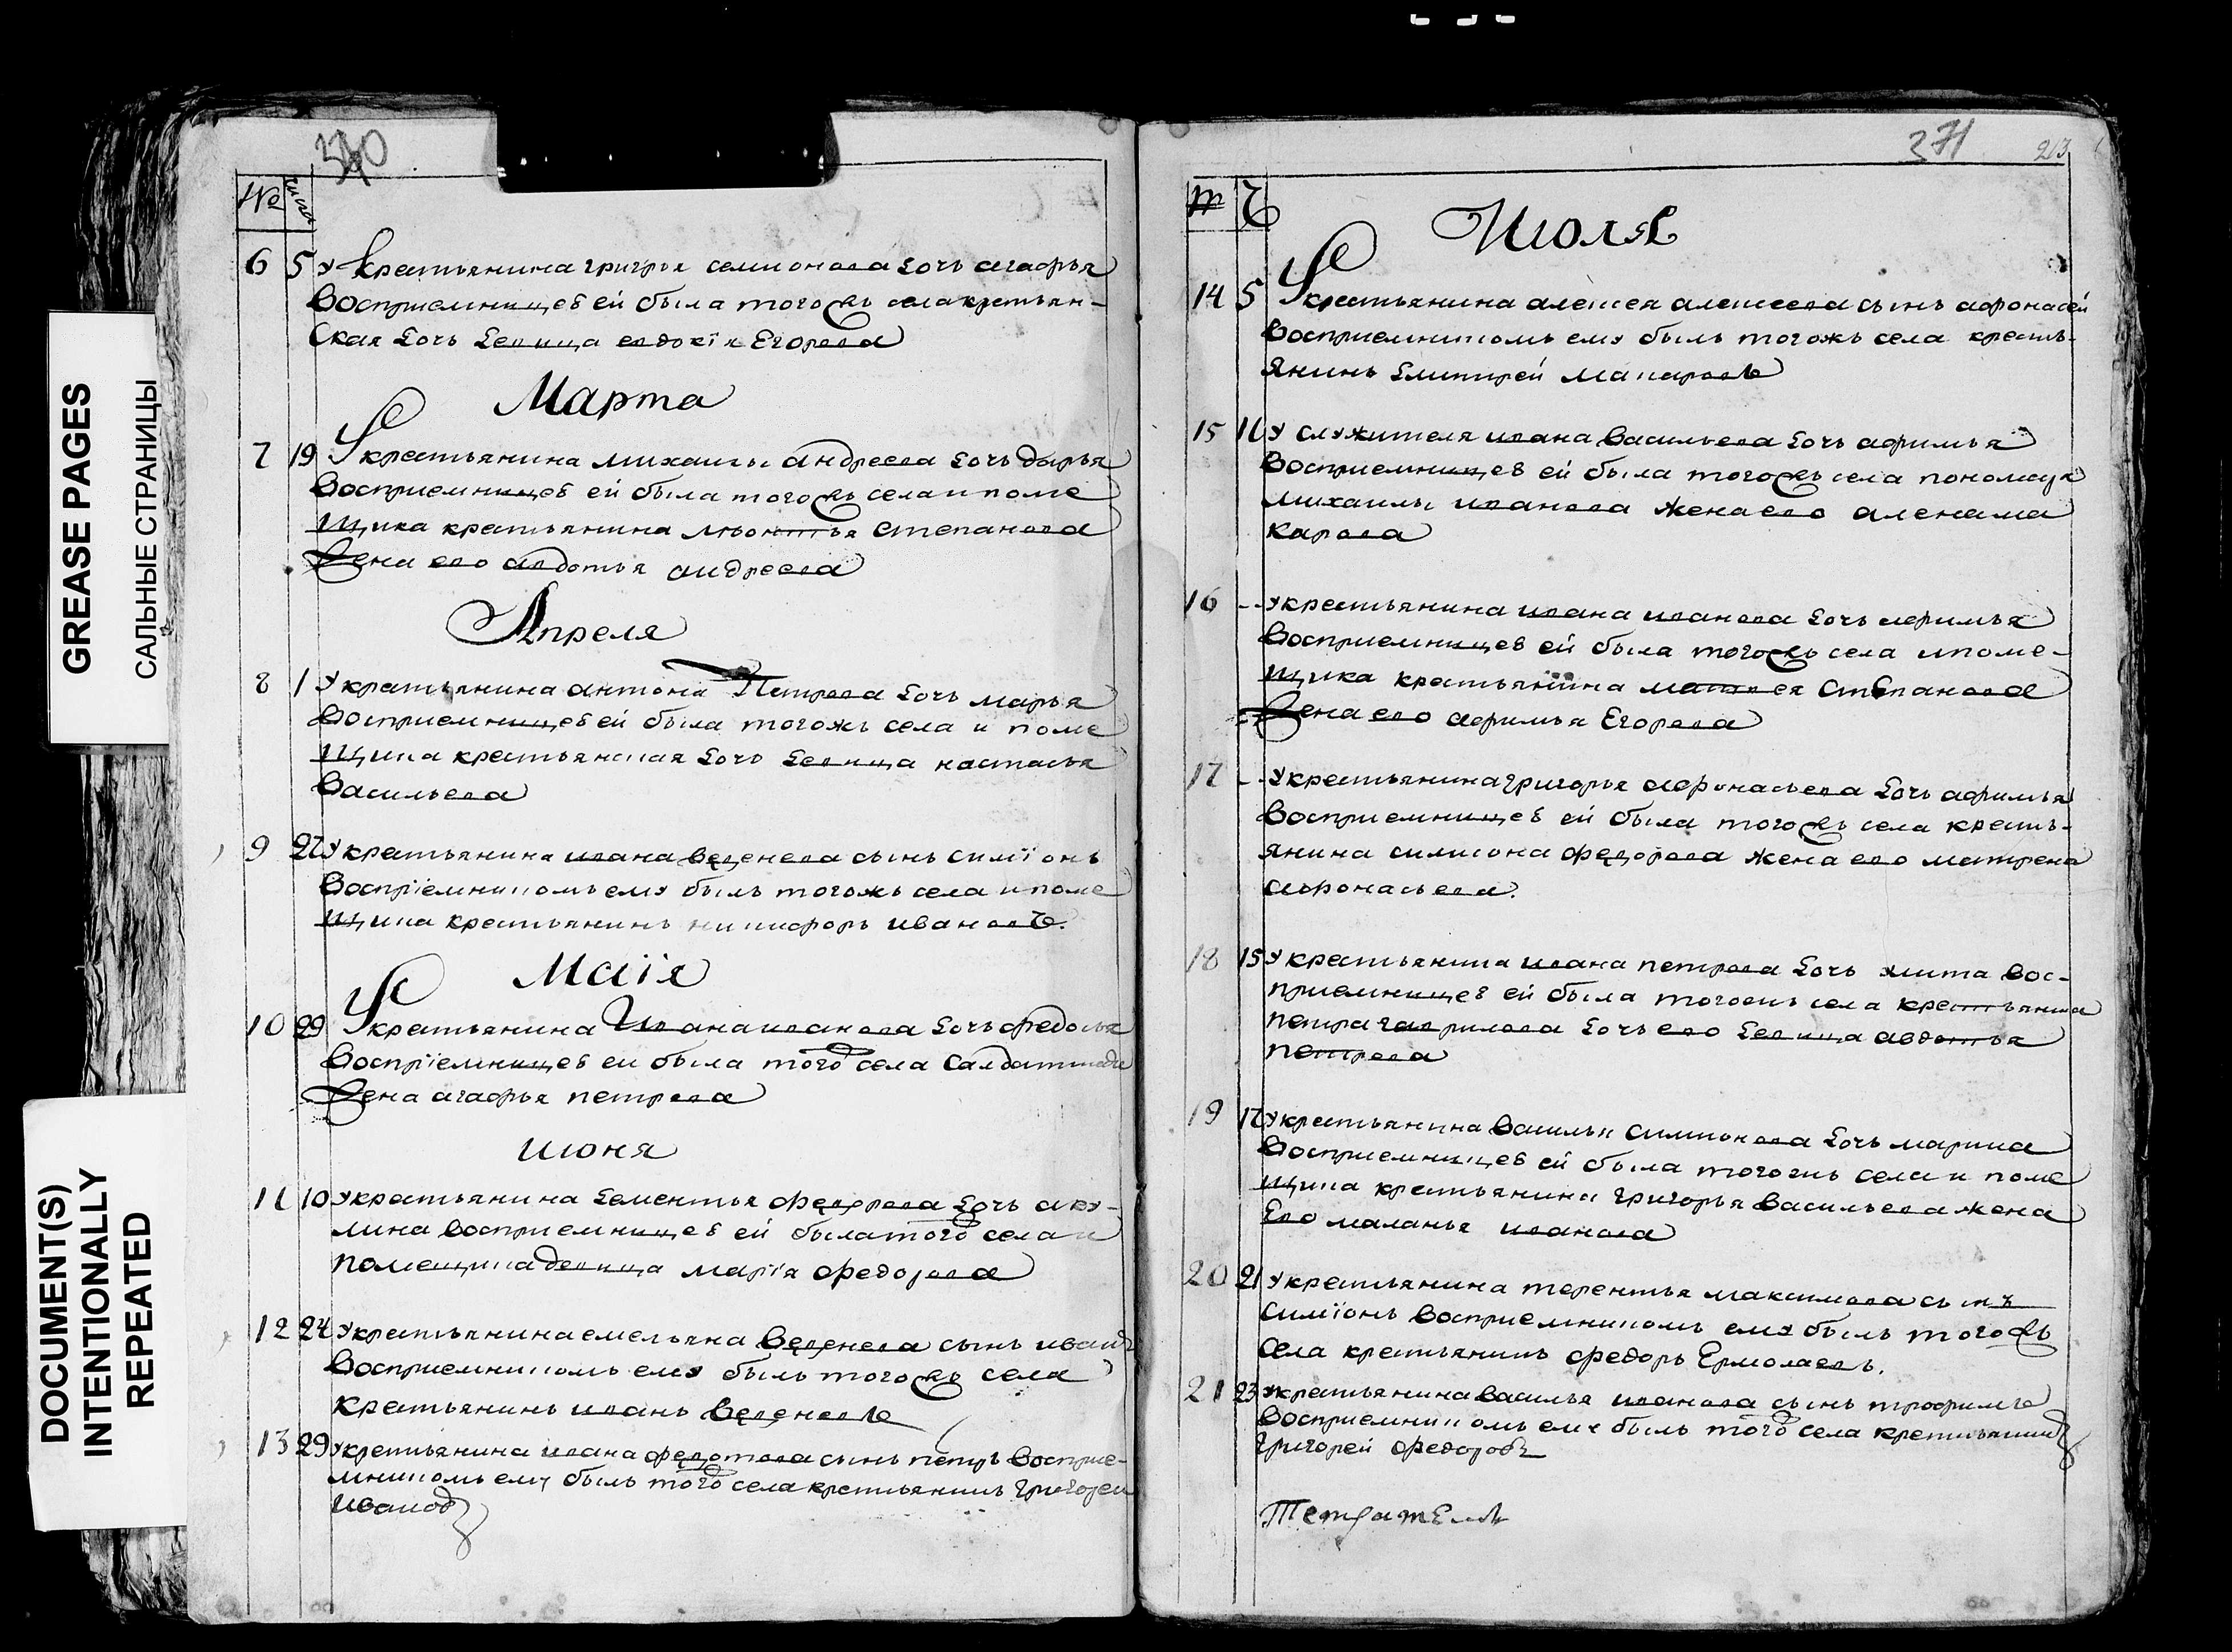 GREASE PAGES
САЛЬНЫЕ СТРАНИЦЫ
DOCUMENT(S)
INTENTIONALLY
REPEATED
№ число
6 5 У крестьянина григорья семионова дочь агафья
восприемницею ей была тогожъ села крестьян-
ская дочь девица евдокїя Егорова
Марта
7 19 У крестьянина михаилы андреева дочь дарья
восприемницею ей была тогожъ села и поме
щика крестьянина леонтья степанова
жена ево авдотья андреева
Апреля
8 1 У крестьянина антона Петрова дочь марья
восприемницею ей была тогожъ села и поме
щика крестьянская дочь девица настасья
васильева
9 27 У крестьянина ивана веденеева сынъ симїонъ
воспрїемникомъ ему былъ тогожъ села и поме
щика крестьянинъ никифоръ ивановъ.
Маїя
10 29 У крестьянина Ивана иванова дочь федосья
воспрїемницею еи была того села салдатская
жена агафья петрова
июня
11 10 У крестьянина дементья федорова дочь аку-
лина восприемницею ей была того села и
помещика девица марїя федорова
12 24 У крестьянина емельяна веденеева сынъ иванъ
восприемникомъ ему былъ тогожъ села
крестьянинъ иванъ веденеевъ
13 29 У крестьянина ивана федотова сынъ петръ восприе-
мникомъ ему былъ того села крестьянинъ григорей
ивановъ
371 213
Июля
14 5 У крестьянина алексея алексеева сынъ афонасей
восприемникомъ ему былъ тогожъ села кресть-
янинъ дмитрей макаровъ
15 11 У служителя ивана васильева дочь афимья
восприемницею ей была тогожъ села пономаря
михаилы иванова жена ево алена ма
карова
16 -- У крестьянина ивана иванова дочь афимья
восприемницею ей была тогожъ села и поме-
щика крестьянина матвея степанова
жена ево афимья Егорова
17 -- У крестьянина григорья афонасьева дочь афимья
восприемницею ей была тогожъ села кресть-
янина симиона федорова жена ево матрена
афонасьева.
18 15 У крестьянина ивана петрова дочь вос-
приемницею ей была тогожъ села крестьянина
петра гаврилова дочь ево девица авдотья
петрова
19 17 У крестьянина василья симионова дочь марина
восприемницею ей была тогожъ села и поме
щика крестьянина григорья васильева жена
Ево маланья иванова
20 21 У крестьянина терентья максимова сынъ
симїонъ восприемникомъ ему былъ тогожъ
села крестьянинъ федоръ Ермолаевъ.
21 23 У крестьянина василья иванова сынъ трофимъ
восприемникомъ ему былъ того села крестьянинъ
григорей федоровъ